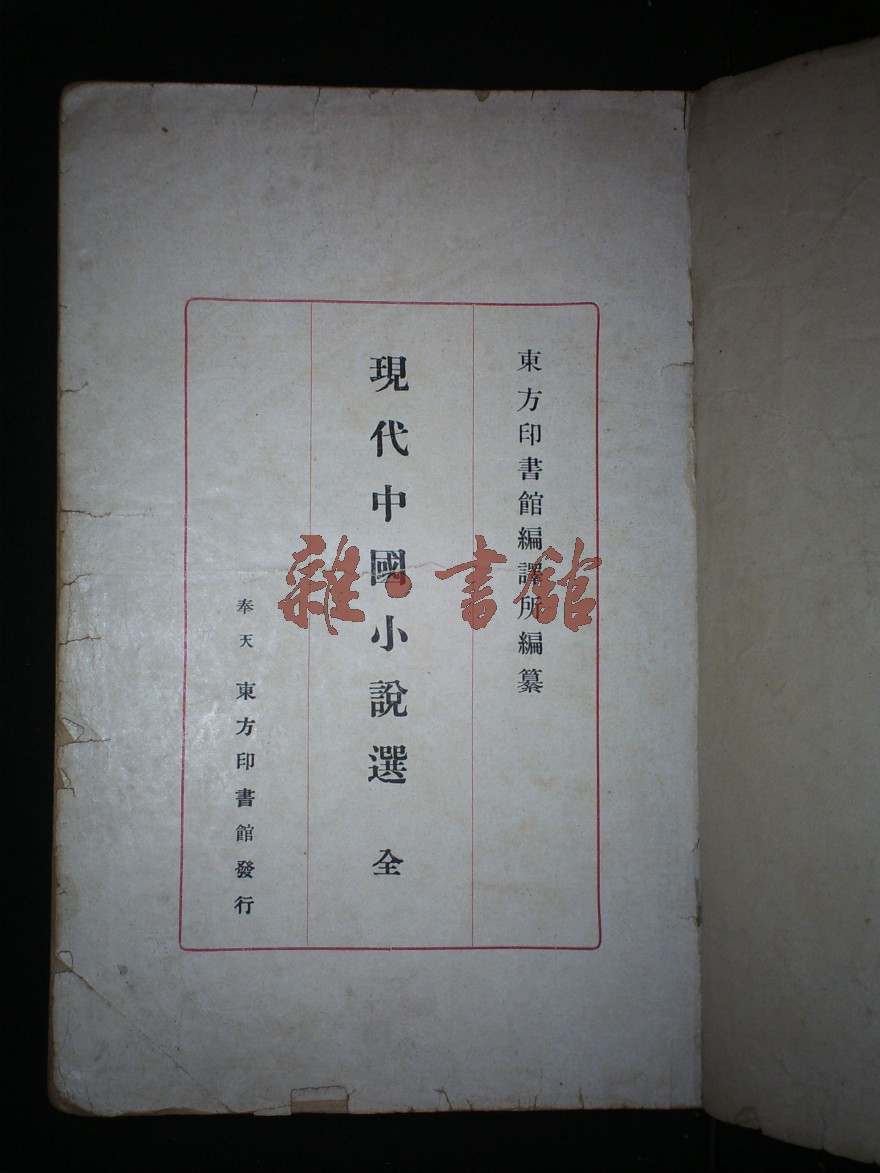 東方印書館編譯所編纂
現代中國小說選 全
奉天 東方印書館發行
雜·書館